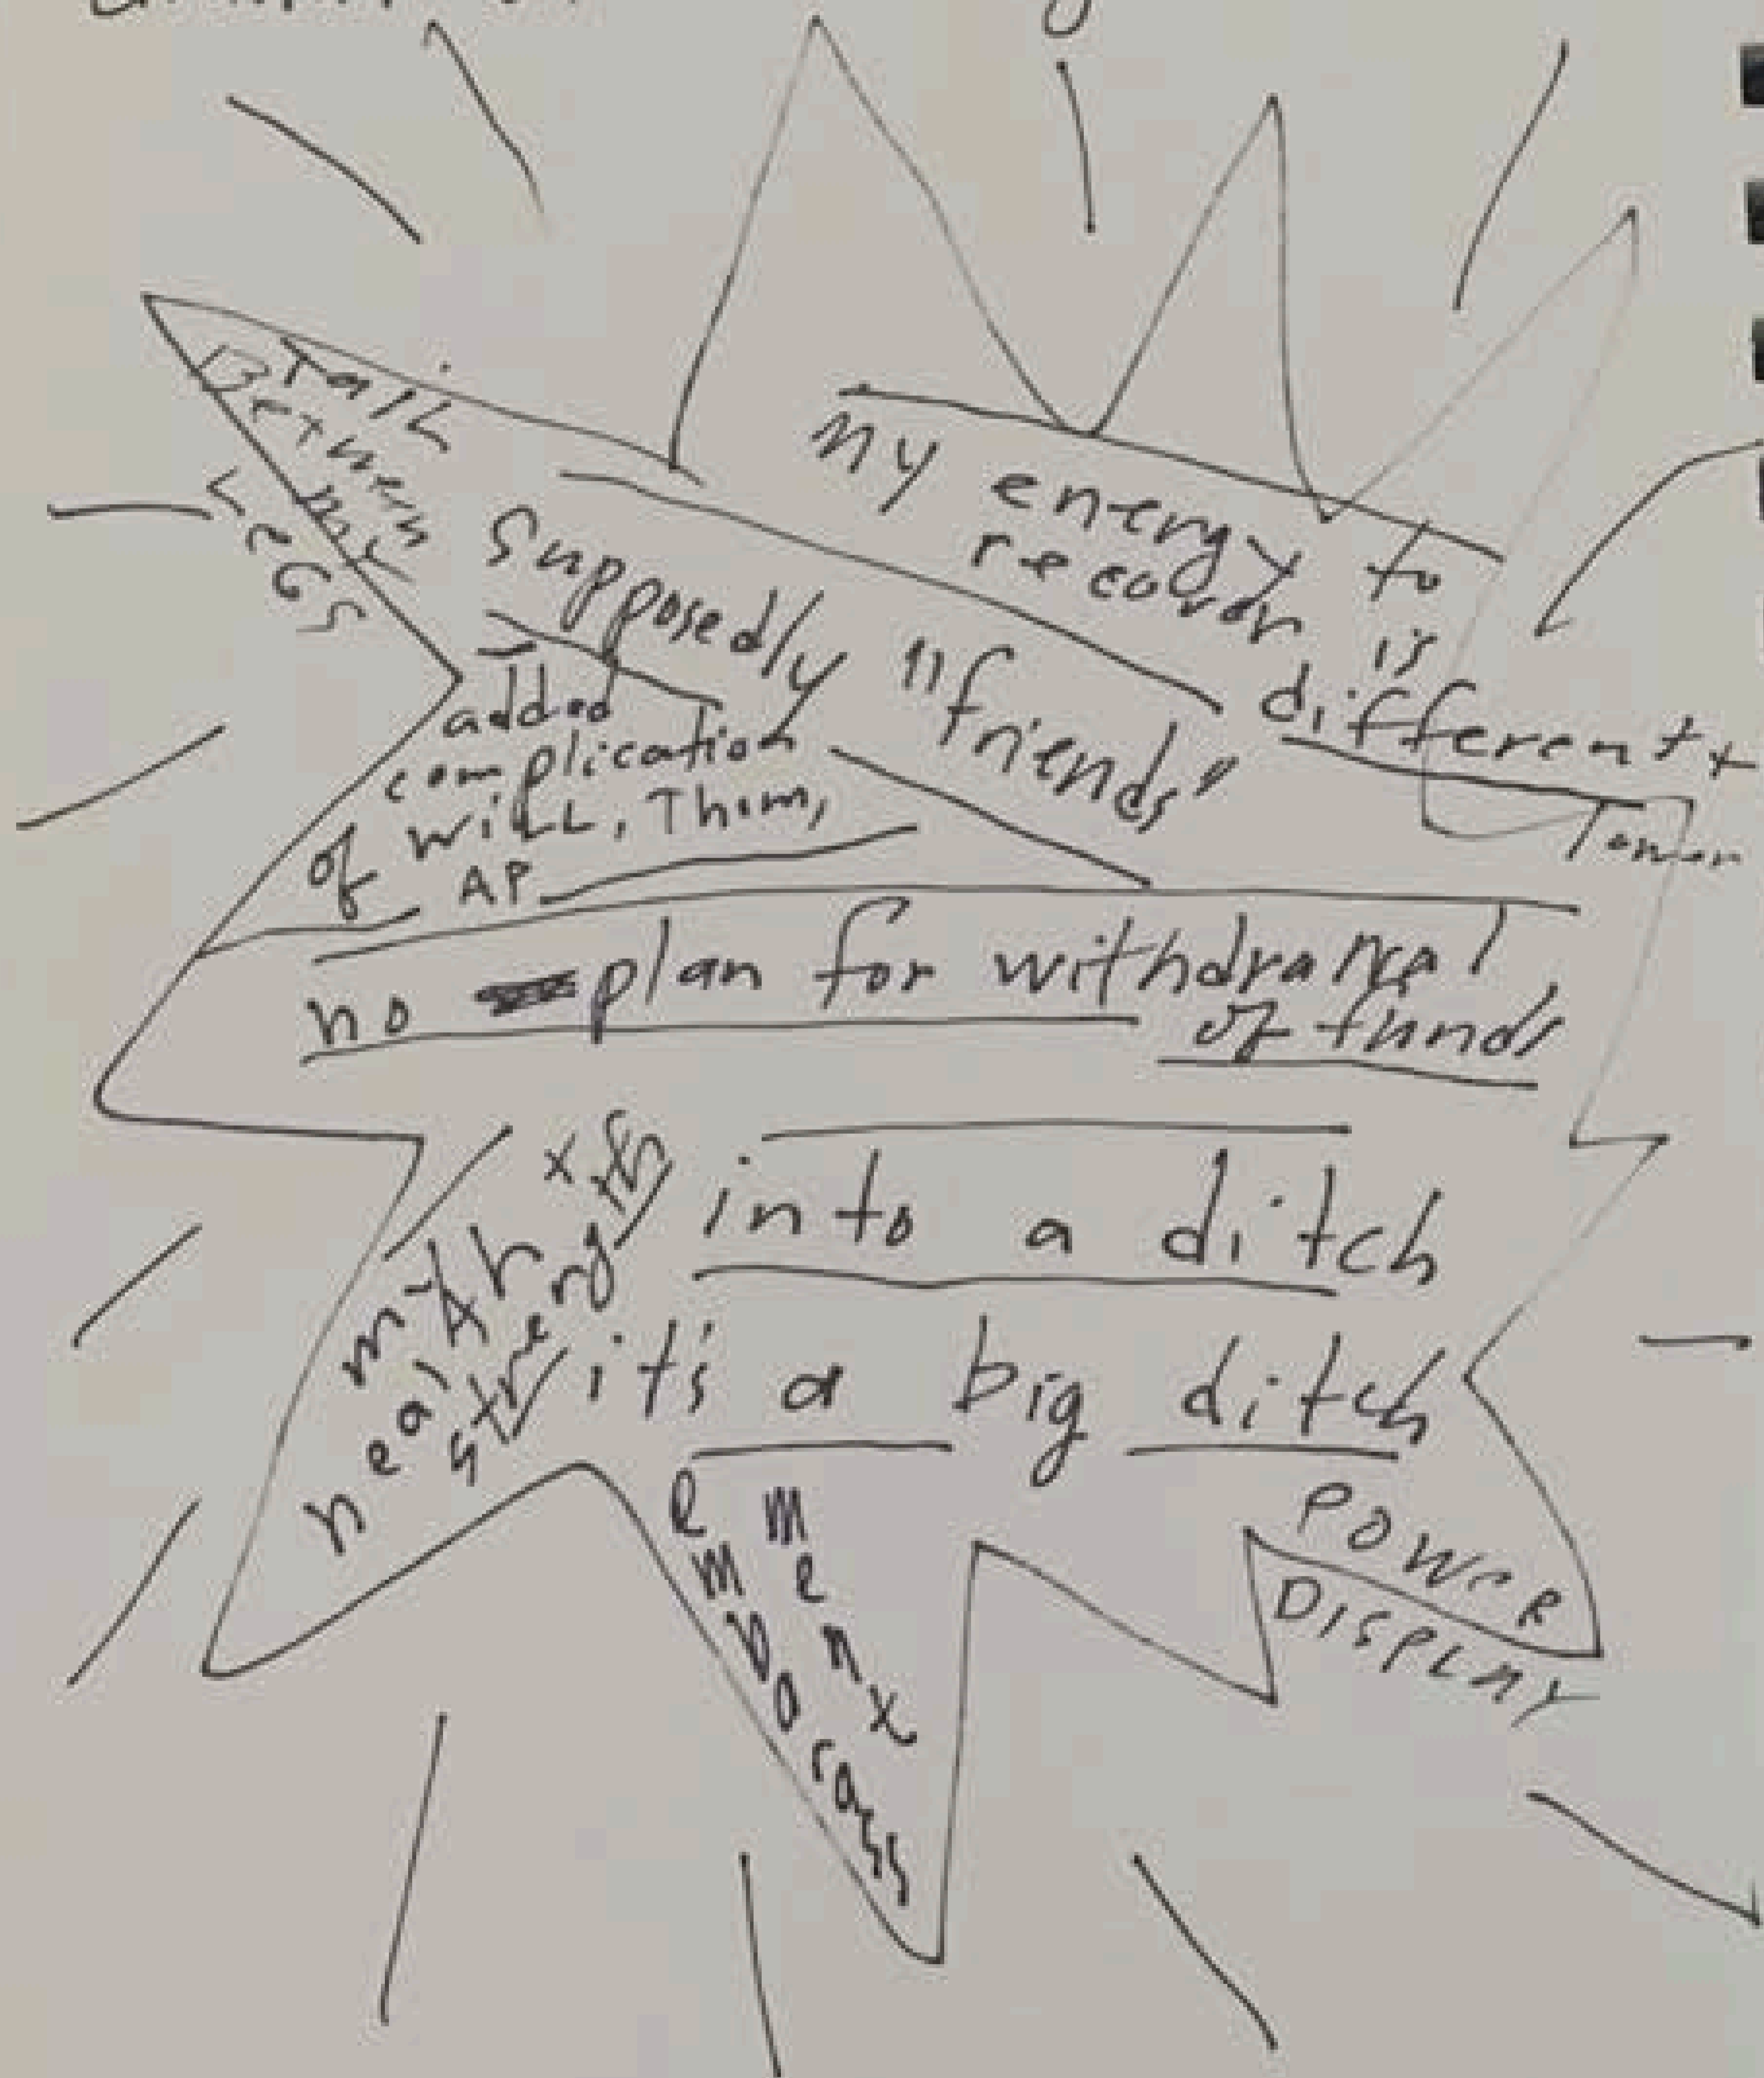 Tail
Between
my
Legs
my energy to
recover is
different +
supposedly "friends"
added
complication
of will, Thom,
AP
no plan for withdrawal
of funds
my health +
strength
into a ditch
it's a big ditch
Embarrass
ment
POWER
DISPLAY